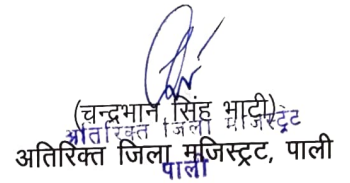 (चन्द्रभान सिंह भाटी)
अतिरिक्त जिला मजिस्ट्रेट
अतिरिक्त जिला मजिस्ट्रट, पाली
पाली